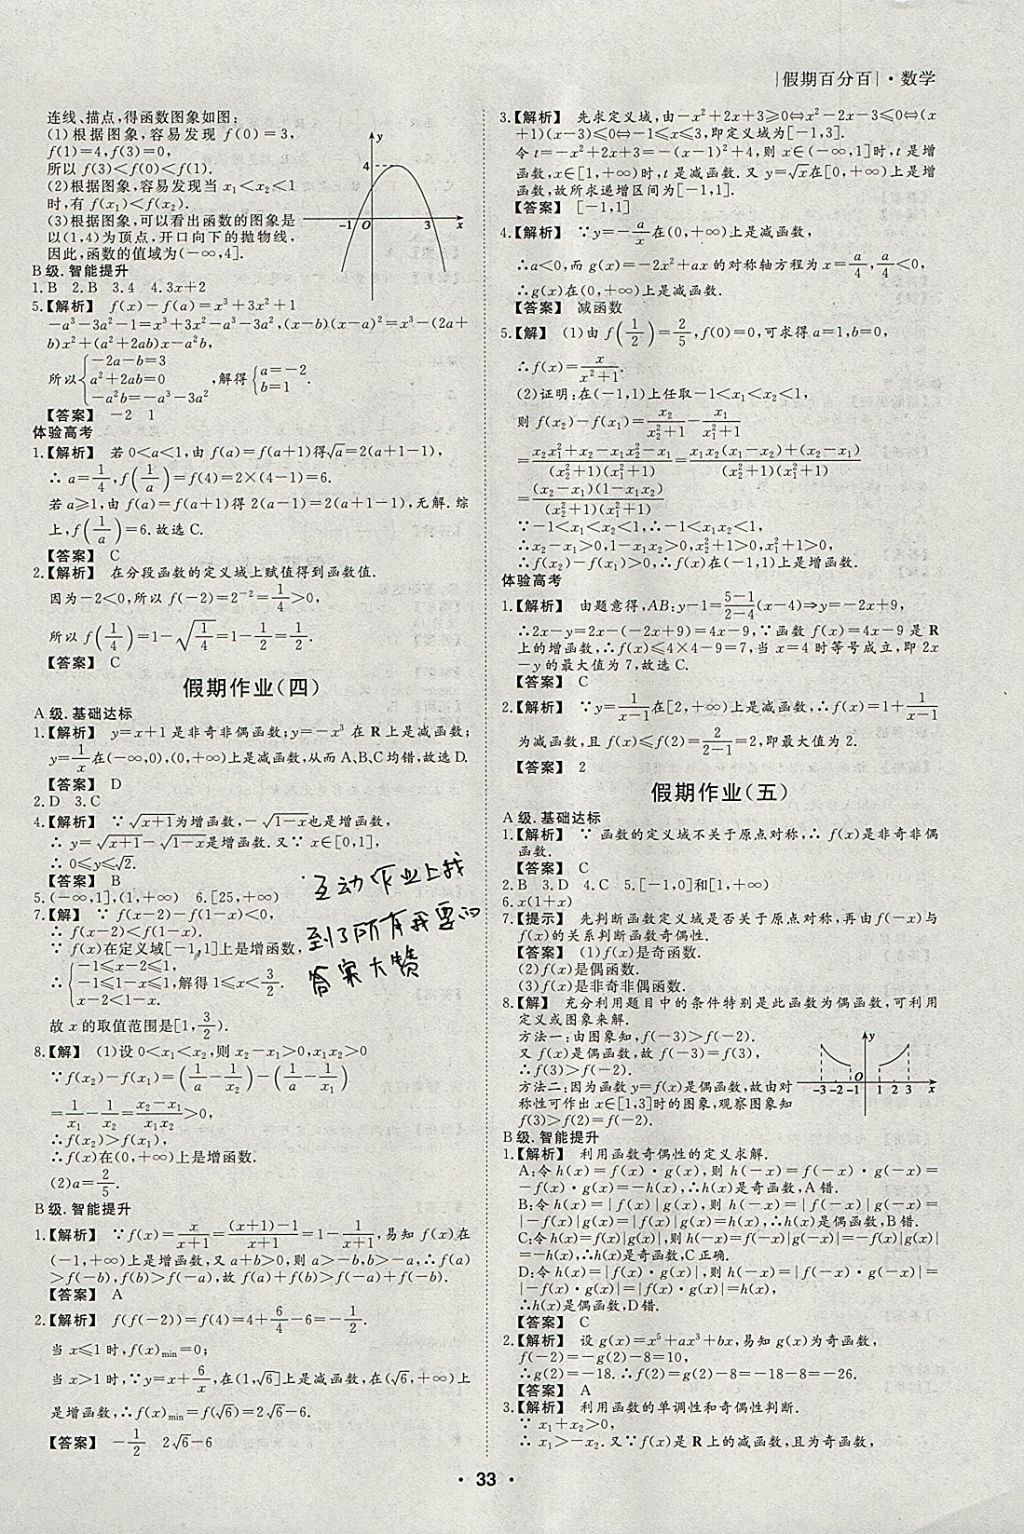 |假期百分百|·数学
连线、描点,得函数图象如图:
(1)根据图象,容易发现 f(0)=3,
f(1)=4,f(3)=0,
所以 f(3)<f(0)<f(1).
(2)根据图象,容易发现当 x₁<x₂≤1
时,有 f(x₁)<f(x₂).
(3)根据图象,可以看出函数的图象是
以(1,4)为顶点,开口向下的抛物线,
因此,函数的值域为(-∞,4].
y
4
-1 O 3 x
B 级.智能提升
1.B 2.B 3.4 4.3x+2
5.【解析】 f(x)-f(a)=x³+3x²+1
-a³-3a²-1=x³+3x²-a³-3a²,(x-b)(x-a)²=x³-(2a+
b)x²+(a²+2ab)x-a²b,
所以{-2a-b=3 a²+2ab=0 -a²b=-a³-3a²,解得{a=-2 b=1.
【答案】 -2 1
体验高考
1.【解析】 若 0<a<1,由 f(a)=f(a+1)得√a=2(a+1-1),
∴a=1/4,f(1/a)=f(4)=2×(4-1)=6.
若 a≥1,由 f(a)=f(a+1)得 2(a-1)=2(a+1-1),无解.综
上,f(1/a)=6.故选 C.
【答案】 C
2.【解析】 在分段函数的定义域上赋值得到函数值.
因为-2<0,所以 f(-2)=2⁻²=1/4>0,
所以 f(1/4)=1-√(1/4)=1-1/2=1/2.
【答案】 C
假期作业(四)
A 级.基础达标
1.【解析】 y=x+1 是非奇非偶函数;y=-x³ 在 R 上是减函数;
y=1/x在(-∞,0),(0,+∞)上是减函数,从而 A、B、C 均错,故选 D.
【答案】 D
2.D 3.C
4.【解析】 ∵√(x+1)为增函数,-√(1-x)也是增函数,
∴ y=√(x+1)-√(1-x)是增函数.又∵ x∈[0,1],
∴ 0≤y≤√2.
【答案】 B
5.(-∞,1],(1,+∞) 6.[25,+∞)
7.【解】 ∵ f(x-2)-f(1-x)<0,
∴ f(x-2)<f(1-x).
∵ f(x)在定义域[-1,1]上是增函数,
∴{-1≤x-2≤1, -1≤1-x≤1, x-2<1-x. 解得 1≤x<3/2.
故 x 的取值范围是[1,3/2).
互动作业上我
到了所有我要的
答案大赞
8.【解】 (1)设 0<x₁<x₂,则 x₂-x₁>0,x₁x₂>0
∵f(x₂)-f(x₁)=(1/a-1/x₂)-(1/a-1/x₁)
=1/x₁-1/x₂=(x₂-x₁)/(x₁x₂)>0,
∴f(x₂)>f(x₁),
∴f(x)在(0,+∞)上是增函数.
(2)a=2/5.
B 级.智能提升
1.【解析】 ∵f(x)=x/(x+1)=((x+1)-1)/(x+1)=1-1/(x+1),易知 f(x)在
(-1,+∞)上是增函数,又 a+b>0,则 a>-b,b>-a,∴f(a)
>f(-b),f(b)>f(-a),故 f(a)+f(b)>f(-a)+f(-b).
【答案】 A
2.【解析】 f(f(-2))=f(4)=4+6/4-6=-1/2.
当 x≤1 时,f(x)min=0;
当 x>1 时,∵y=x+6/x,在(1,√6]上是减函数,在(√6,+∞)上
是增函数,∴f(x)min=f(√6)=2√6-6.
【答案】 -1/2 2√6-6
3.【解析】 先求定义域,由-x²+2x+3≥0⇔x²-2x-3≤0⇔(x
+1)(x-3)≤0⇔-1≤x≤3,即定义域为[-1,3].
令 t=-x²+2x+3=-(x-1)²+4,则 x∈(-∞,1]时,t 是增
函数,x∈[1,+∞)时,t 是减函数.又 y=√x在[0,+∞)上是增
函数,故所求递增区间为[-1,1].
【答案】 [-1,1]
4.【解析】 ∵y=-a/x在(0,+∞)上是减函数,
∴a<0,而 g(x)=-2x²+ax 的对称轴方程为 x=a/4,a/4<0,
∴g(x)在(0,+∞)上是减函数.
【答案】 减函数
5.【解】 (1)由 f(1/2)=2/5,f(0)=0,可求得 a=1,b=0,
∴f(x)=x/(x²+1).
(2)证明:在(-1,1)上任取-1<x₁<x₂<1,
则 f(x₂)-f(x₁)=x₂/(x₂²+1)-x₁/(x₁²+1)
=(x₂x₁²+x₂-x₁x₂²-x₁)/((x₂²+1)(x₁²+1))=(x₁x₂(x₁-x₂)+(x₂-x₁))/((x₂²+1)(x₁²+1))
=((x₂-x₁)(1-x₁x₂))/((x₂²+1)(x₁²+1))
∵-1<x₁<x₂<1,∴-1<x₁x₂<1,
∴x₂-x₁>0,1-x₁x₂>0,x₂²+1>0,x₁²+1>0,
∴f(x₂)-f(x₁)>0,∴f(x)在(-1,1)上是增函数.
体验高考
1.【解析】 由题意得,AB:y-1=(5-1)/(2-4)(x-4)⇒y=-2x+9,
∴2x-y=2x-(-2x+9)=4x-9,∵函数 f(x)=4x-9 是 R
上的增函数,∴f(x)≤4×4-9=7,当 x=4 时等号成立,即 2x
-y 的最大值为 7,故选 C.
【答案】 C
2.【解析】 ∵y=1/(x-1)在[2,+∞)上是减函数,∴f(x)=1+1/(x-1)
为减函数,且 f(x)≤f(2)=2/(2-1)=2,即最大值为 2.
【答案】 2
假期作业(五)
A 级.基础达标
1.【解析】 ∵ 函数的定义域不关于原点对称,∴ f(x)是非奇非偶
函数.
【答案】 C
2.B 3.D 4.C 5.[-1,0]和[1,+∞)
6.x(1+x)
7.【提示】 先判断函数定义域是否关于原点对称,再由 f(-x)与
f(x)的关系判断函数奇偶性.
【答案】 (1)f(x)是奇函数.
(2)f(x)是偶函数.
(3)f(x)是非奇非偶函数.
8.【解】 充分利用题目中的条件特别是此函数为偶函数,可利用
定义或图象来解.
方法一:由图象知,f(-3)>f(-2).
又 f(x)是偶函数,∴f(3)=f(-3),f(2)=f(-2).
∴f(3)>f(-2).
方法二:因为函数 y=f(x)是偶函数,故由对
称性可作出 x∈[1,3]时的图象,观察图象知
f(3)>f(2)=f(-2).
y
O
-3 -2 -1 1 2 3 x
B 级.智能提升
1.【解析】 利用函数奇偶性的定义求解.
A:令 h(x)=f(x)·g(x),则 h(-x)=f(-x)·g(-x)=
-f(x)·g(x)=-h(x),∴h(x)是奇函数,A 错.
B:令 h(x)=|f(x)|g(x),则 h(-x)=|f(-x)|g(-x)=
|-f(x)|g(x)=|f(x)|g(x)=h(x),∴h(x)是偶函数,B 错.
C:令 h(x)=f(x)|g(x)|,则 h(-x)=f(-x)|g(-x)|=-f(x)|g(x)|
=-h(x),∴h(x)是奇函数,C 正确.
D:令 h(x)=|f(x)·g(x)|,则 h(-x)=|f(-x)·g(-x)|=
|-f(x)·g(x)|=|f(x)·g(x)|=h(x),
∴h(x)是偶函数,D 错.
【答案】 C
2.【解析】 设 g(x)=x⁵+ax³+bx,易知 g(x)为奇函数,
f(-2)=-g(2)-8=10,
∴g(2)=-18.∴f(2)=g(2)-8=-18-8=-26.
【答案】 A
3.【解析】 利用函数的单调性和奇偶性判断.
∵ x₁+x₂>0,
∴ x₁>-x₂.又∵f(x)是 R 上的减函数,且为奇函数,
·33·